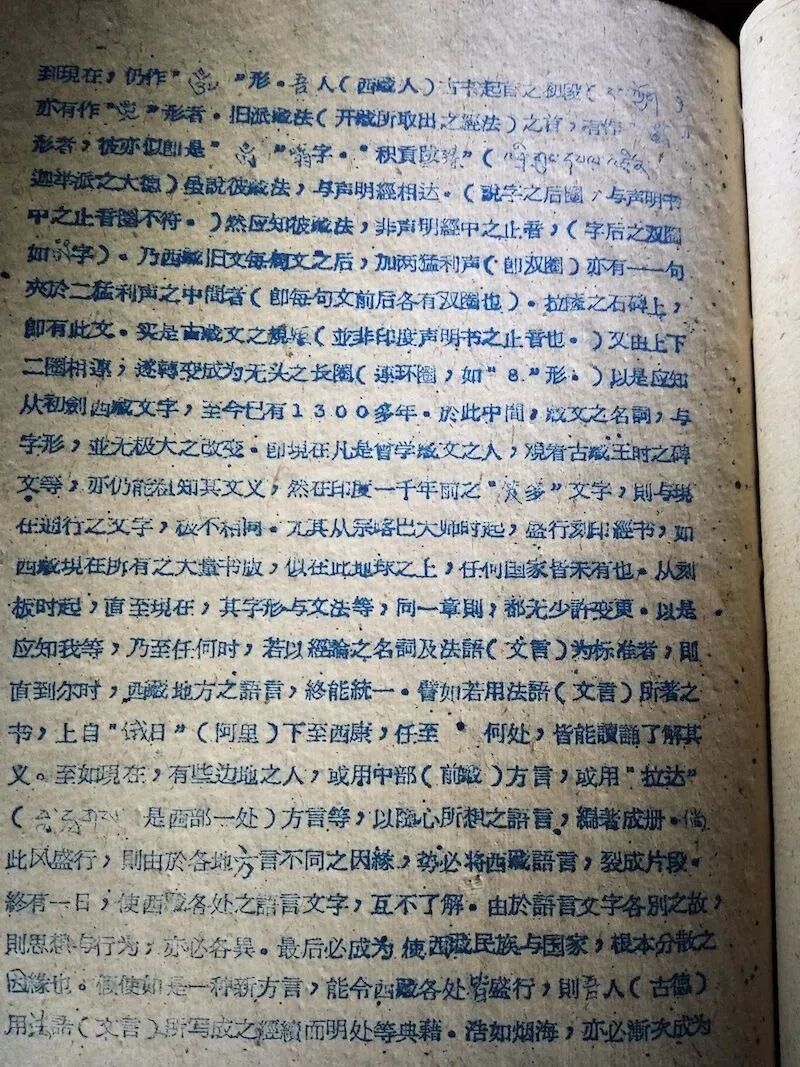 到現在，仍作“ ”形。吾人（西藏人）古書起首之初段（ ）
亦有作“ ”形者。旧派藏法（开藏所取出之經法）之首，有作
形者，彼亦似即是“ ” 字。“积貢 ”（
迦举派之大德）虽說彼藏法，与声明經相违。（說字之后圈，与声明书
中之止音圈不符。）然应知彼藏法，非声明經中之止音，（字后之双圈
如 字）。乃西藏旧文每 文之后，加两猛利声（即双圈）亦有一一句
夾於二猛利声之中間者（即每句文前后各有双圈也）。拉薩之石碑上，
即有此文。实是古藏文之規 （並非印度声明书之止音也。）又由上下
二圈相連，遂轉变成为无头之长圈（連环圈，如“8”形。）以是应知
从初創西藏文字，至今已有1300多年。於此中間，藏文之名詞，与
字形，並无极大之改变。即現在凡是曾学藏文之人，观看古藏王时之碑
文等，亦仍能粗知其文义，然在印度一千年前之“ 多”文字，則与現
在通行之文字，极不相同。尤其从宗喀巴大师时起，盛行刻印經书，如
西藏現在所有之大量书版，似在此地球之上，任何国家皆未有也。从刻
板时起，直至現在，其字形与文法等，同一章則，都无少許变更。以是
应知我等，乃至任何时，若以經論之名詞及法語（文言）为标准者，則
直到尔时，西藏地方之語言，終能統一。譬如若用法語（文言）所著之
书，上自“俄日”（阿里）下至西康，任至 何处，皆能讀誦了解其
义。至如現在，有些边地之人，或用中部（前藏）方言，或用“拉达”
（ 是西部一处）方言等，以隨心所想之語言，編著成册。倘
此风盛行，則由於各地方言不同之因緣，势必将西藏語言，裂成片段。
終有一日，使西藏各处之語言文字，互不了解。由於語言文字各別之故，
則思想与行为，亦必各異。最后必成为使西藏民族与国家，根本分散之
因緣也。假使如是一种新方言，能令西藏各处皆盛行，則吾人（古德）
用法語（文言）所写成之經續而明处等典藉。浩如烟海，亦必漸次成为